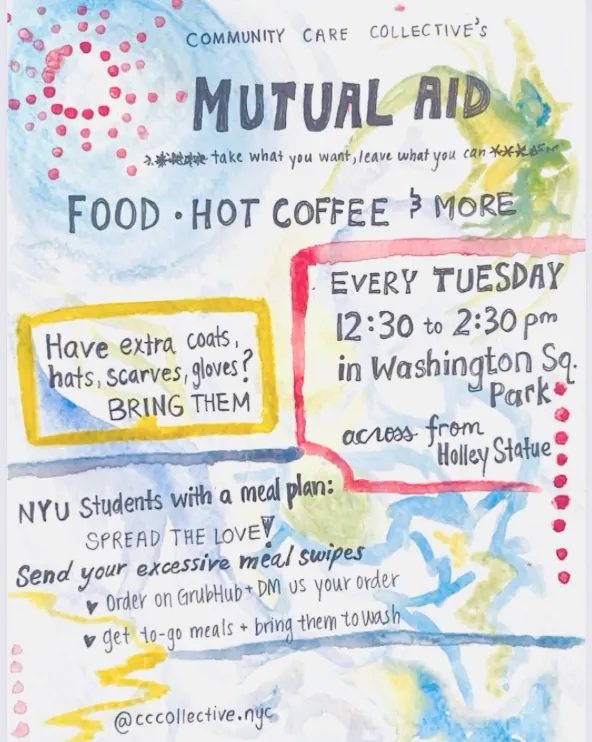 COMMUNITY CARE COLLECTIVE'S
MUTUAL AID
take what you want, leave what you can
FOOD • HOT COFFEE & MORE
EVERY TUESDAY
12:30 to 2:30 pm
in Washington Sq.
Park
across from
Holley Statue
Have extra coats,
hats, scarves, gloves?
BRING THEM
NYU Students with a meal plan:
SPREAD THE LOVE!
Send your excessive meal swipes
♥ Order on GrubHub + DM us your order
♥ get to-go meals + bring them to wash
@cccollective.nyc